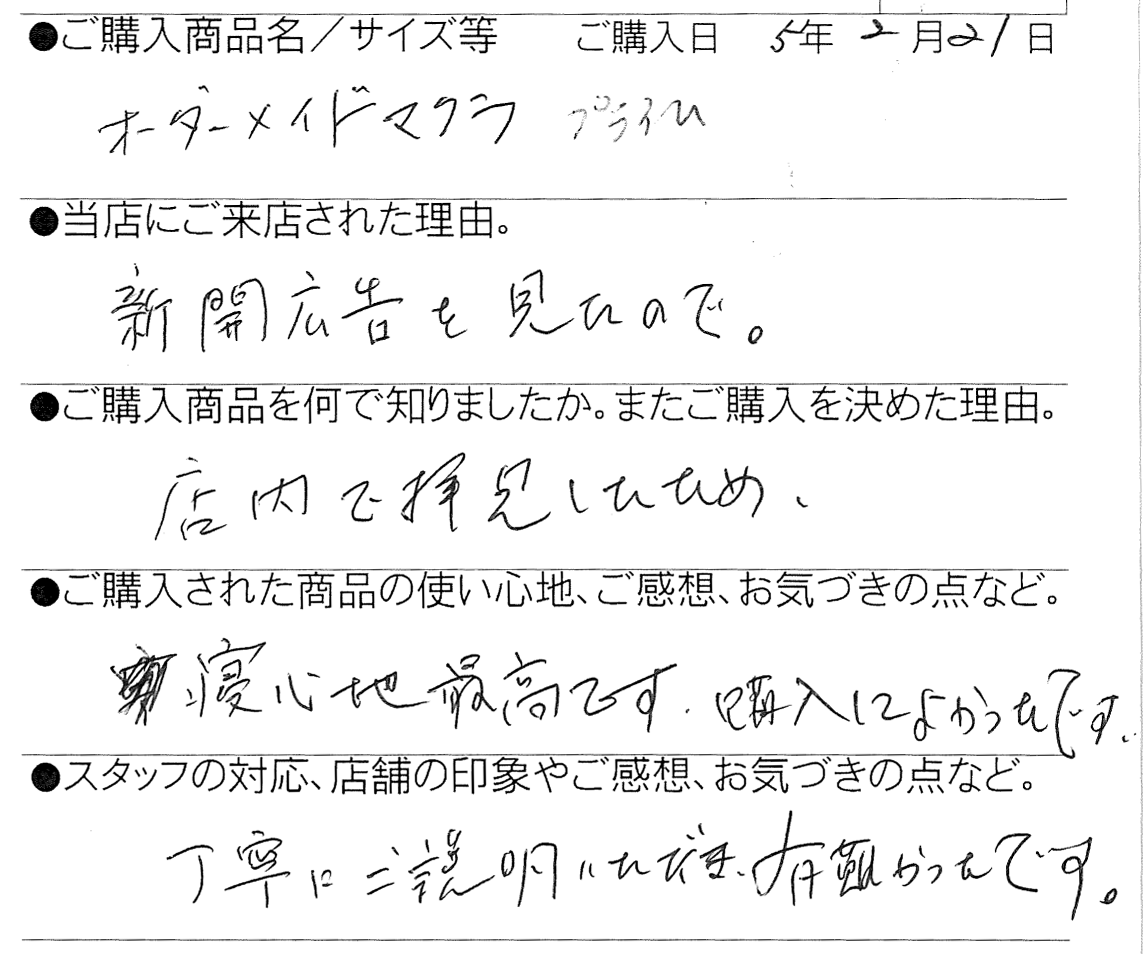 ●ご購入商品名／サイズ等　ご購入日　5年 2月21日
オーダーメイドマクラ　プライム
●当店にご来店された理由。
新聞広告を見たので。
●ご購入商品を何で知りましたか。またご購入を決めた理由。
店内で拝見したため、
●ご購入された商品の使い心地、ご感想、お気づきの点など。
寝心地最高です。購入してよかったです。
●スタッフの対応、店舗の印象やご感想、お気づきの点など。
丁寧にご説明いただき、有難かったです。